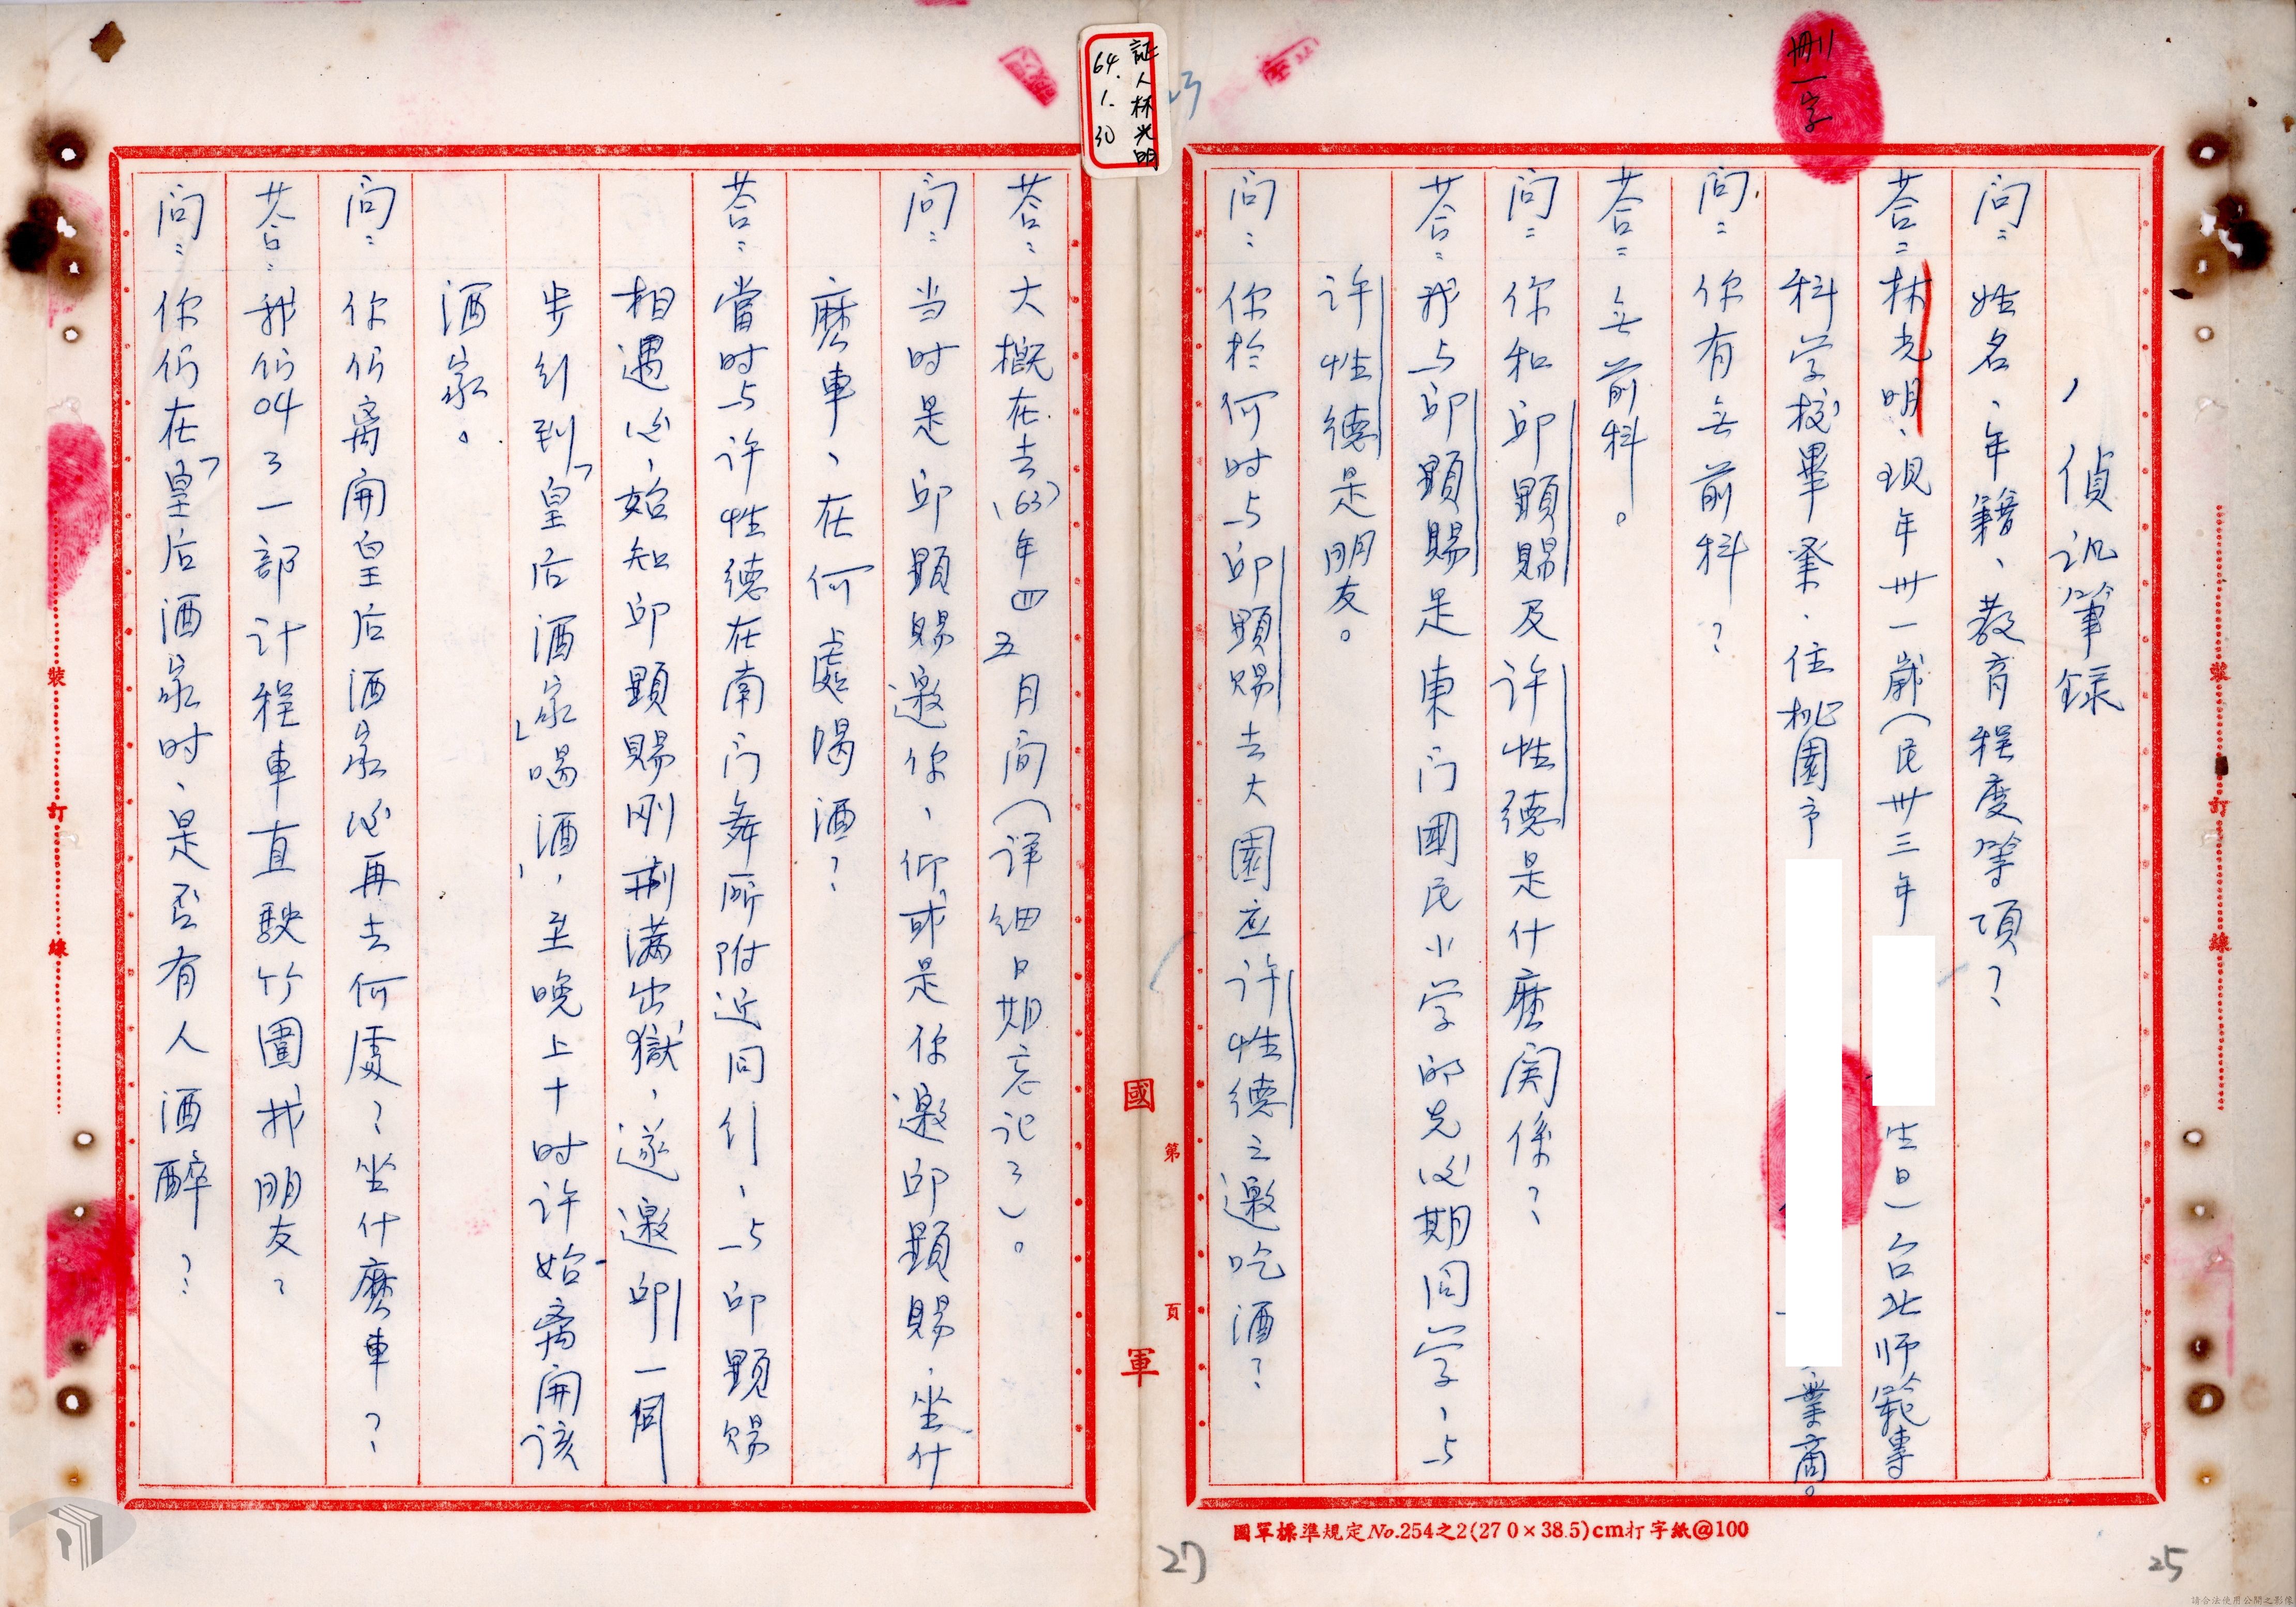 刪一字
偵訊筆錄
問：姓名、年籍、教育程度等項？
答：林光明、現年卅一歲（民卅三年
生日）台北师範專
科学校畢業．住桃園市
業商。
問：你有无前科？
答：无前科。
問：你和邱顯賜及许性德是什麼関係？
答：我与邱顯賜是東门國民小学的先後期同学、与
许性德是朋友。
問：你於何时与邱顯賜去大園应许性德之邀吃酒？
証人林光明
64.1.30
23
答：大概在去（63）年四五月间（详细日期忘记了）。
問：当时是邱顯賜邀你、仰或是你邀邱顯賜．坐什
麼車、在何處喝酒？
答：當时与许性德在南门舞厛附近同行、与邱顯賜
相遇後、始知邱顯賜刚刑满出獄、遂邀邱一同
步行到「皇后酒家」喝酒，至晚上十时许始离開该
酒家。
問：你们离開皇后酒家後再去何處？坐什麼車？
答：我们叫了一部计程車直駛竹圍找朋友？
問：你们在「皇后酒家时、是否有人酒醉？
裝
訂
線
裝
訂
線
國
軍
第
頁
國軍標準規定No.254之2(27 0×38.5)cm打字紙@100
27
25
請合法使用公開之影像